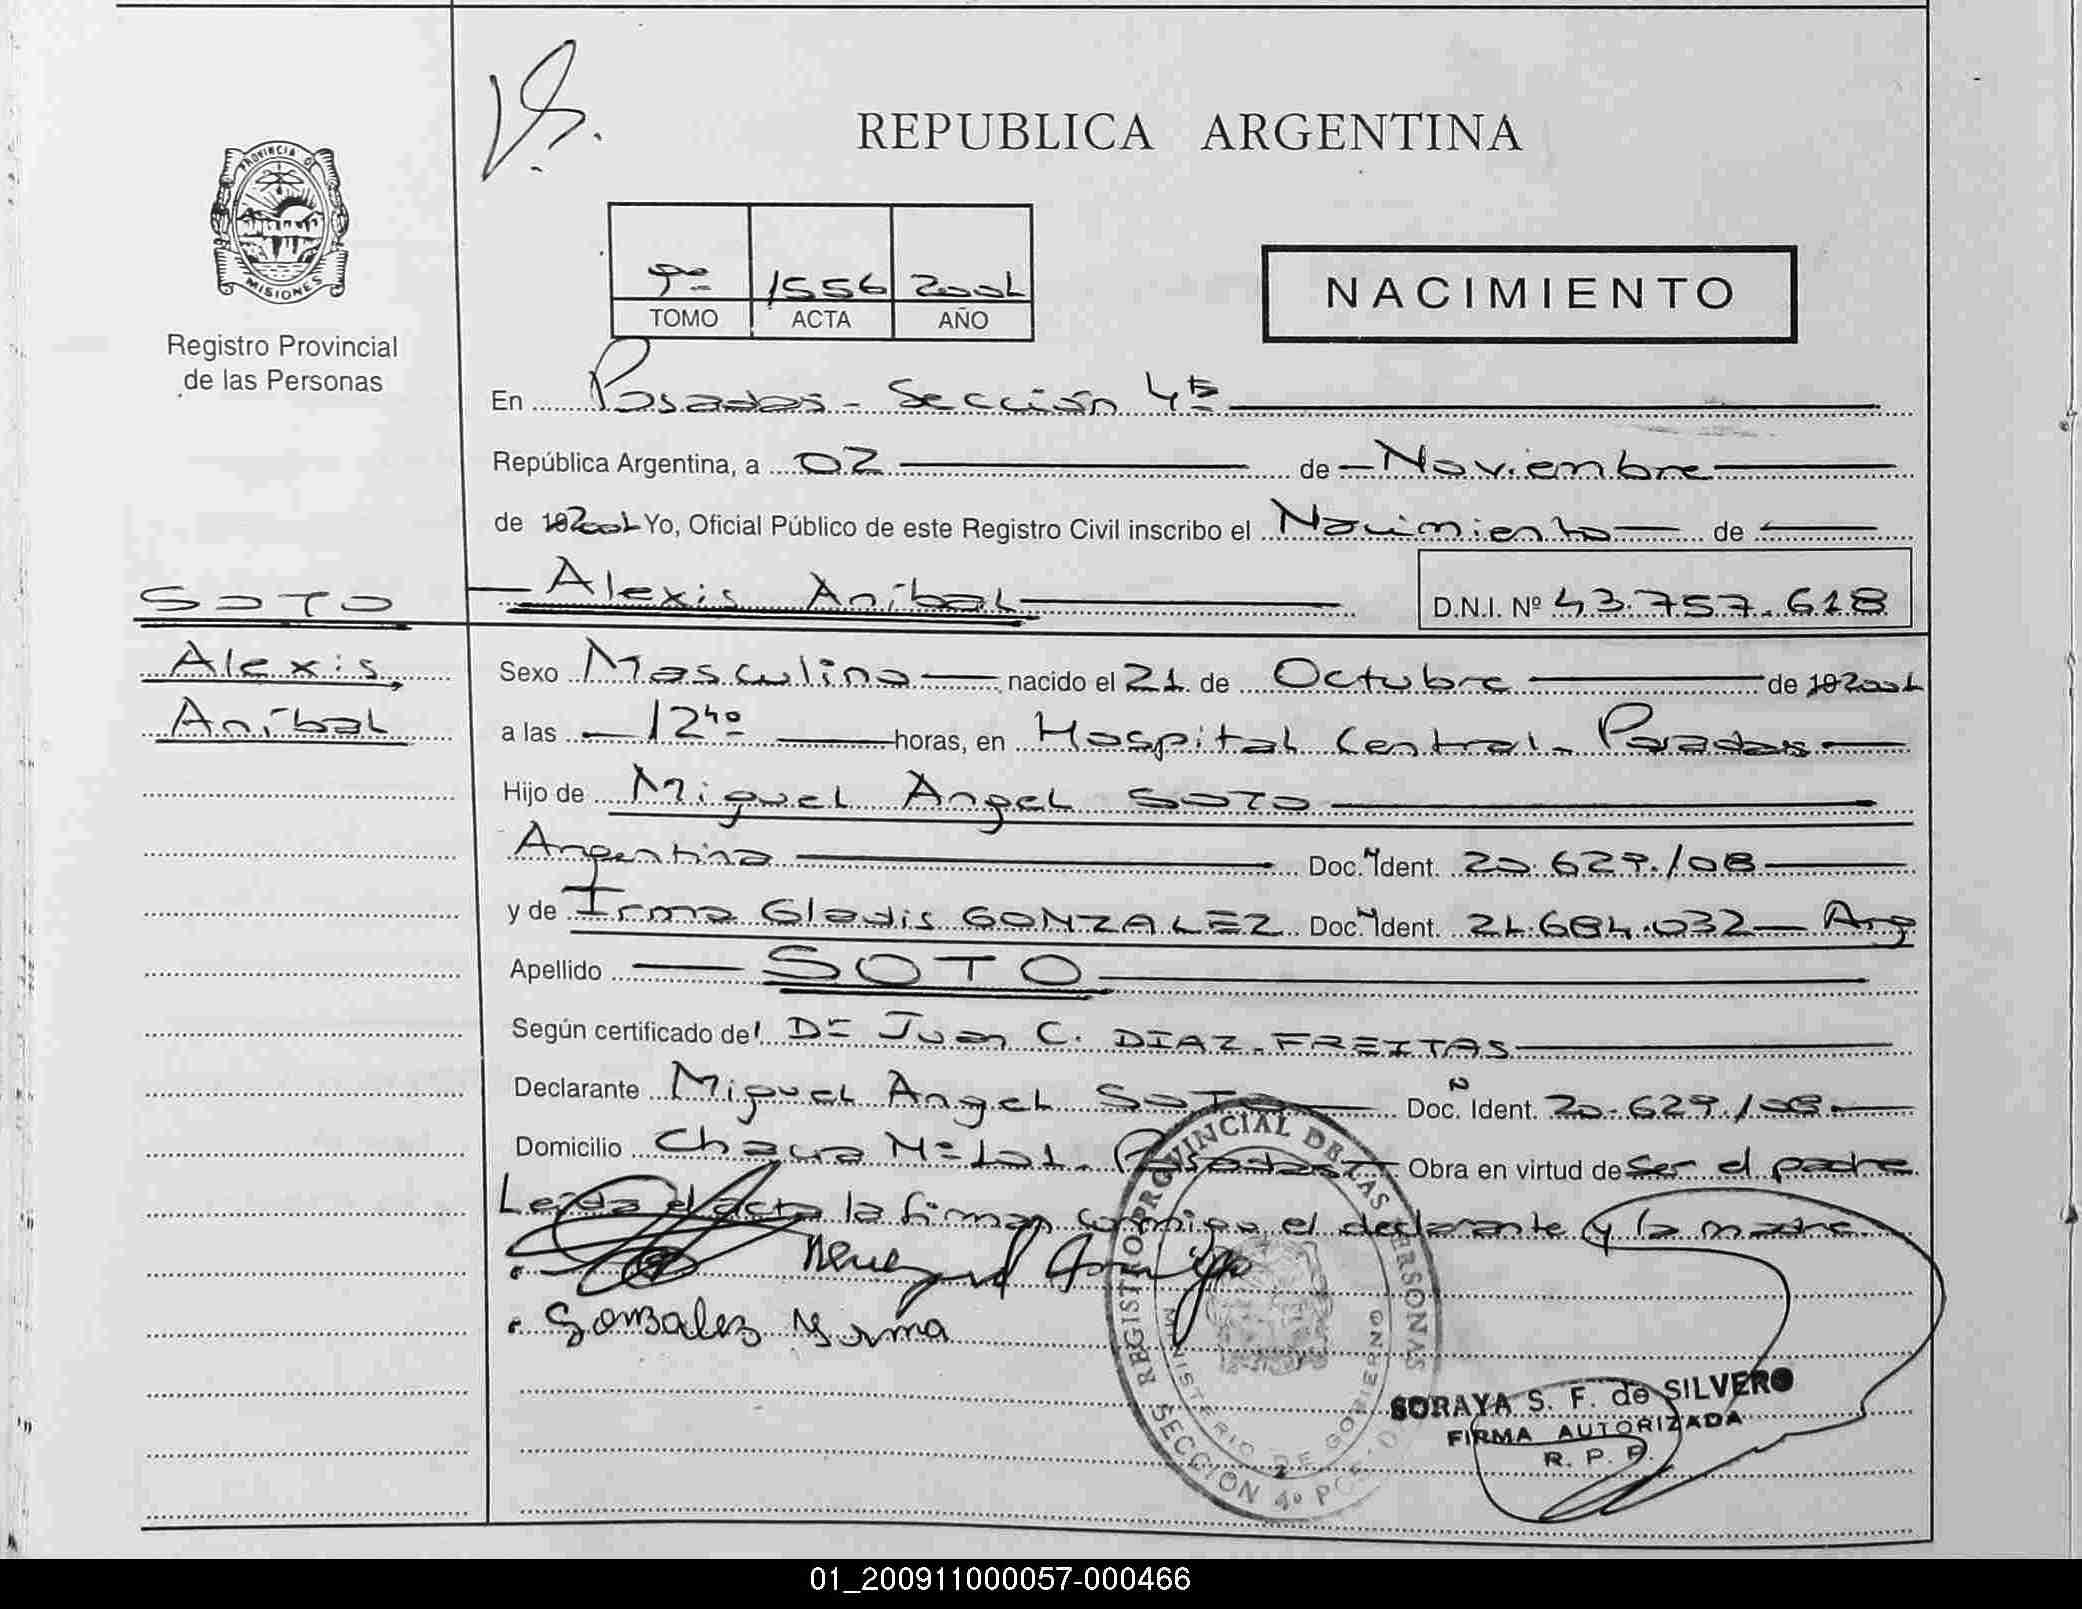 REPUBLICA ARGENTINA
PROVINCIA D
MISIONES
Registro Provincial
de las Personas
1556 2001
TOMO ACTA AÑO
NACIMIENTO
En Posadas - Sección 4ta
República Argentina, a 02 de Noviembre
de 192001 Yo, Oficial Público de este Registro Civil inscribo el Nacimiento de
Alexis Aníbal D.N.I. Nº 43.757.618
SOTO
Alexis
Aníbal
Sexo Masculino nacido el 21 de Octubre de 192001
a las 12 40 horas, en Hospital Central. Posadas
Hijo de Miguel Angel SOTO
Argentina Doc. N Ident. 20.629.108
y de Irma Gladis GONZALEZ Doc. N Ident. 21.684.032 Arg
Apellido SOTO
Según certificado del Dr Juan C. DIAZ. FREITAS
Declarante Miguel Angel SOTO Doc. N Ident. 20.629.108
Domicilio Chacra Nº 101. Posadas Obra en virtud de Ser el padre
Leída el acta la firman conmigo el declarante y la madre
Gonzalez Yrma
REGISTRO PROVINCIAL DE LAS PERSONAS
MINISTERIO DE GOBIERNO
SECCION 4º
SORAYA S. F. de SILVERO
FIRMA AUTORIZADA
R. P. P.
01_200911000057-000466